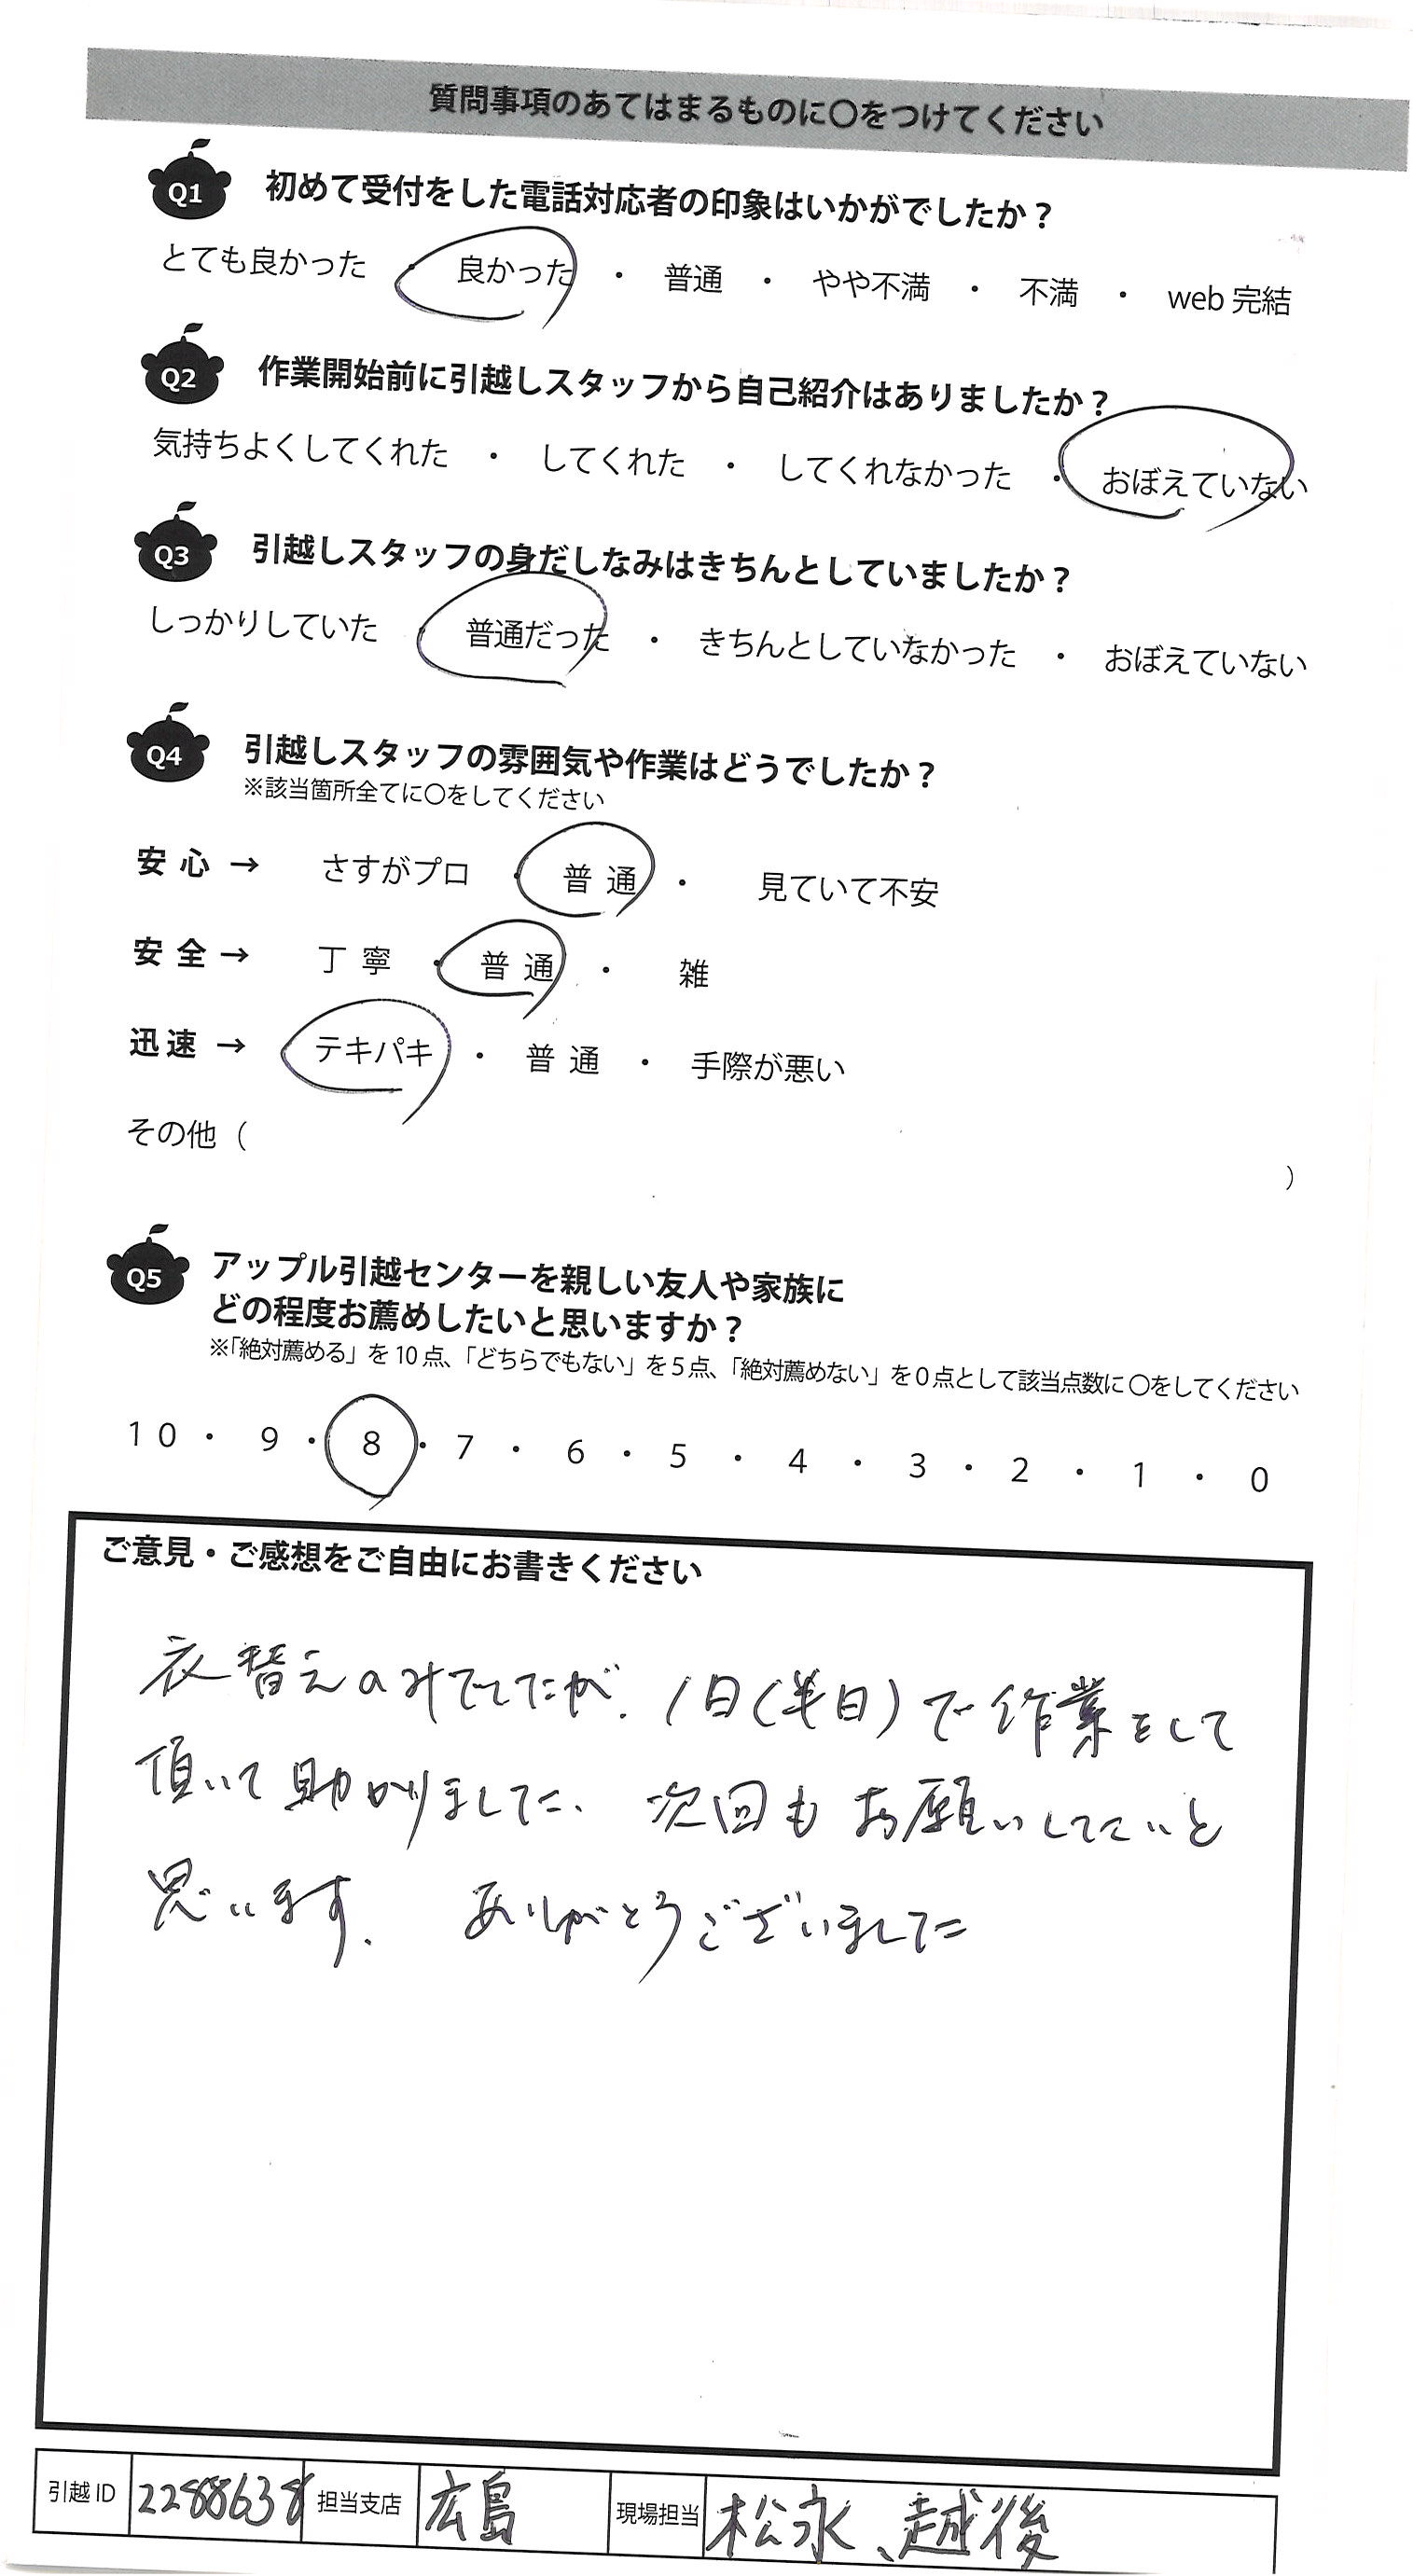 質問事項のあてはまるものに○をつけてください
Q1 初めて受付をした電話対応者の印象はいかがでしたか？
とても良かった ・ 良かった ・ 普通 ・ やや不満 ・ 不満 ・ web完結
Q2 作業開始前に引越しスタッフから自己紹介はありましたか？
気持ちよくしてくれた ・ してくれた ・ してくれなかった ・ おぼえていない
Q3 引越しスタッフの身だしなみはきちんとしていましたか？
しっかりしていた ・ 普通だった ・ きちんとしていなかった ・ おぼえていない
Q4 引越しスタッフの雰囲気や作業はどうでしたか？
※該当箇所全てに○をしてください
安心 → さすがプロ ・ 普通 ・ 見ていて不安
安全 → 丁寧 ・ 普通 ・ 雑
迅速 → テキパキ ・ 普通 ・ 手際が悪い
その他（ ）
Q5 アップル引越センターを親しい友人や家族に
どの程度お薦めしたいと思いますか？
※「絶対薦める」を10点、「どちらでもない」を5点、「絶対薦めない」を0点として該当点数に○をしてください
10 ・ 9 ・ 8 ・ 7 ・ 6 ・ 5 ・ 4 ・ 3 ・ 2 ・ 1 ・ 0
ご意見・ご感想をご自由にお書きください
衣替えのみでしたが、1日(半日)で作業をして
頂いて助かりました、次回もお願いしたいと
思います. ありがとうございました
引越ID 2288638 担当支店 広島 現場担当 松永、越後